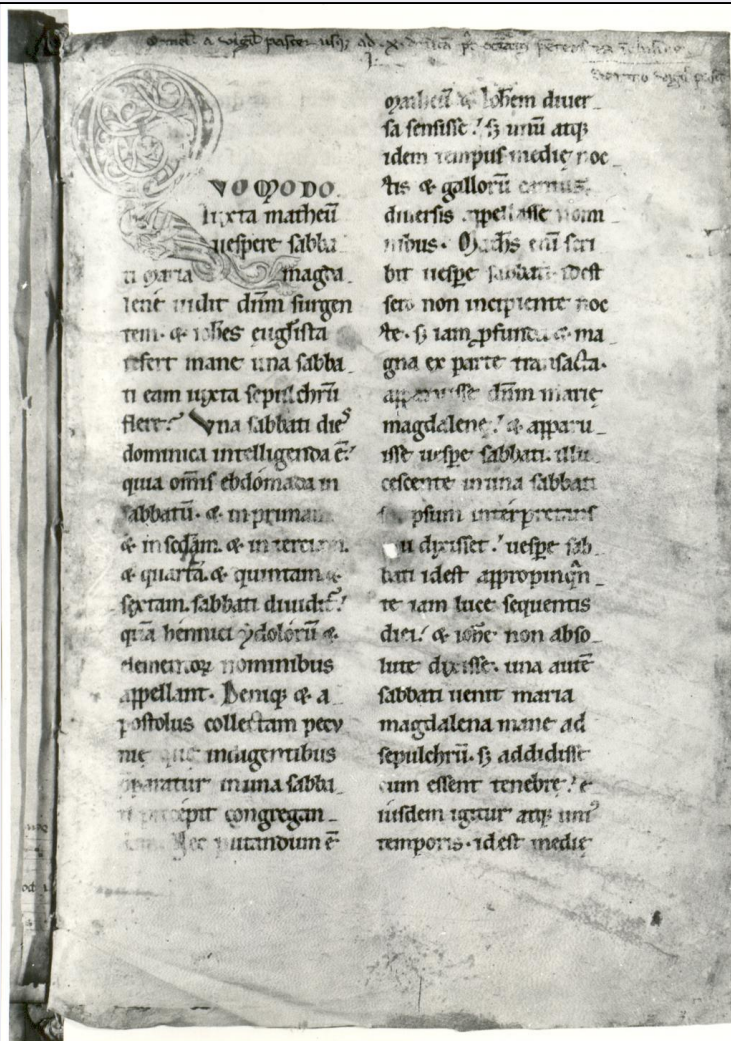 Omel. a vigil pasce usq; ad .x.
VOMODO
iuxta matheū
uespere sabba
ti maria magda
lene uidit dn̄m surgen
tem. & ioh̄es eugl̄ista
refert mane una sabba
ti eam iuxta sepulchrū
flere? Vna sabbati dieꝰ
dominica intelligenda ē?
quia om̄is ebdomada in
sabbatū. & in primam
& in sc̄dam. & in terciam.
& quartā. & quintam &
sextam. sabbati diuidit̃?
quā hennici ydolorū &
elementoꝝ nominibus
appellant. Deniq; & a
postolus collectam pecv
nie que indigentibus
ꝑparatur in una sabba
ti precepit congregan
Nec putandum ē
Matheū & Ioh̄em diuer
sa sensisse? sꝫ unū atq;
idem tempus medię noc
tis & gallorū cantus
diuersis appellasse nomi
nibus. Math̄s eni scri
bit uesꝑe sabbati. idest
sero non incipiente noc
te. sꝫ iam ꝓfunda & ma
gna ex parte transacta.
apparuisse dn̄m marię
magdalenę? & apparu
isse uesꝑe sabbati. illu
cescente in una sabbati
ipsum interpretans
dixisset? uesꝑe sab
bati idest appropinqn̄
te iam luce sequentis
diei? & ioh̄e non abso
lute dixisse. una autē
sabbati uenit maria
magdalena mane ad
sepulchrū. sꝫ addidisse
cum essent tenebrę? e
iusdem igitur atq; uniꝰ
temporis. idest medię